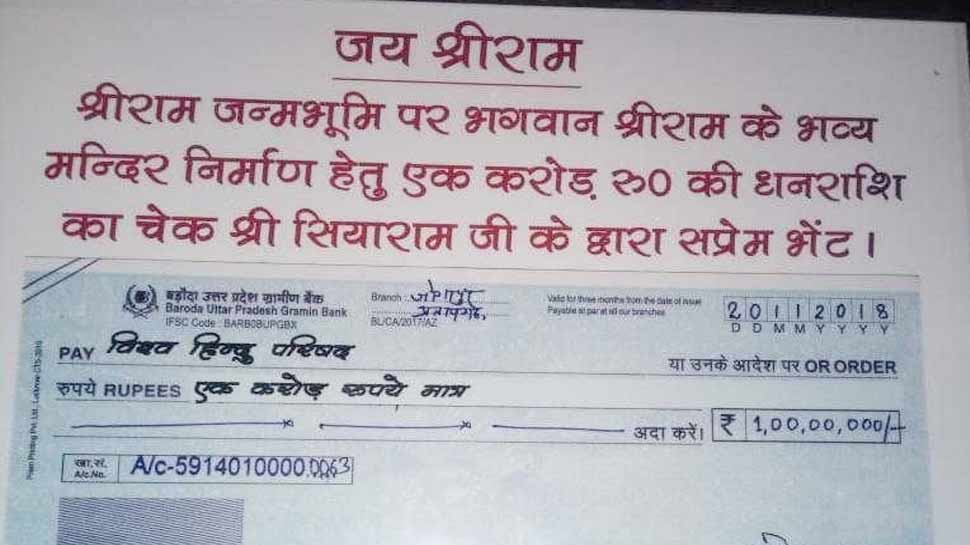 जय श्रीराम
श्रीराम जन्मभूमि पर भगवान श्रीराम के भव्य
मन्दिर निर्माण हेतु एक करोड़ रु0 की धनराशि
का चेक श्री सियाराम जी के द्वारा सप्रेम भेंट।
बड़ौदा उत्तर प्रदेश ग्रामीण बैंक
Baroda Uttar Pradesh Gramin Bank
IFSC Code : BARB0BUPGBX
Branch :
प्रतापगढ़
BL/CA/2017/AZ
Valid for three months from the date of issue
Payable at par at all our branches
20112018
D D M M Y Y Y Y
PAY विश्व हिन्दू परिषद
या उनके आदेश पर OR ORDER
रुपये RUPEES एक करोड़ रूपये मात्र
अदा करें। ₹ 1,00,00,000/-
खा.सं. A/c.No. A/c-5914010000.0063